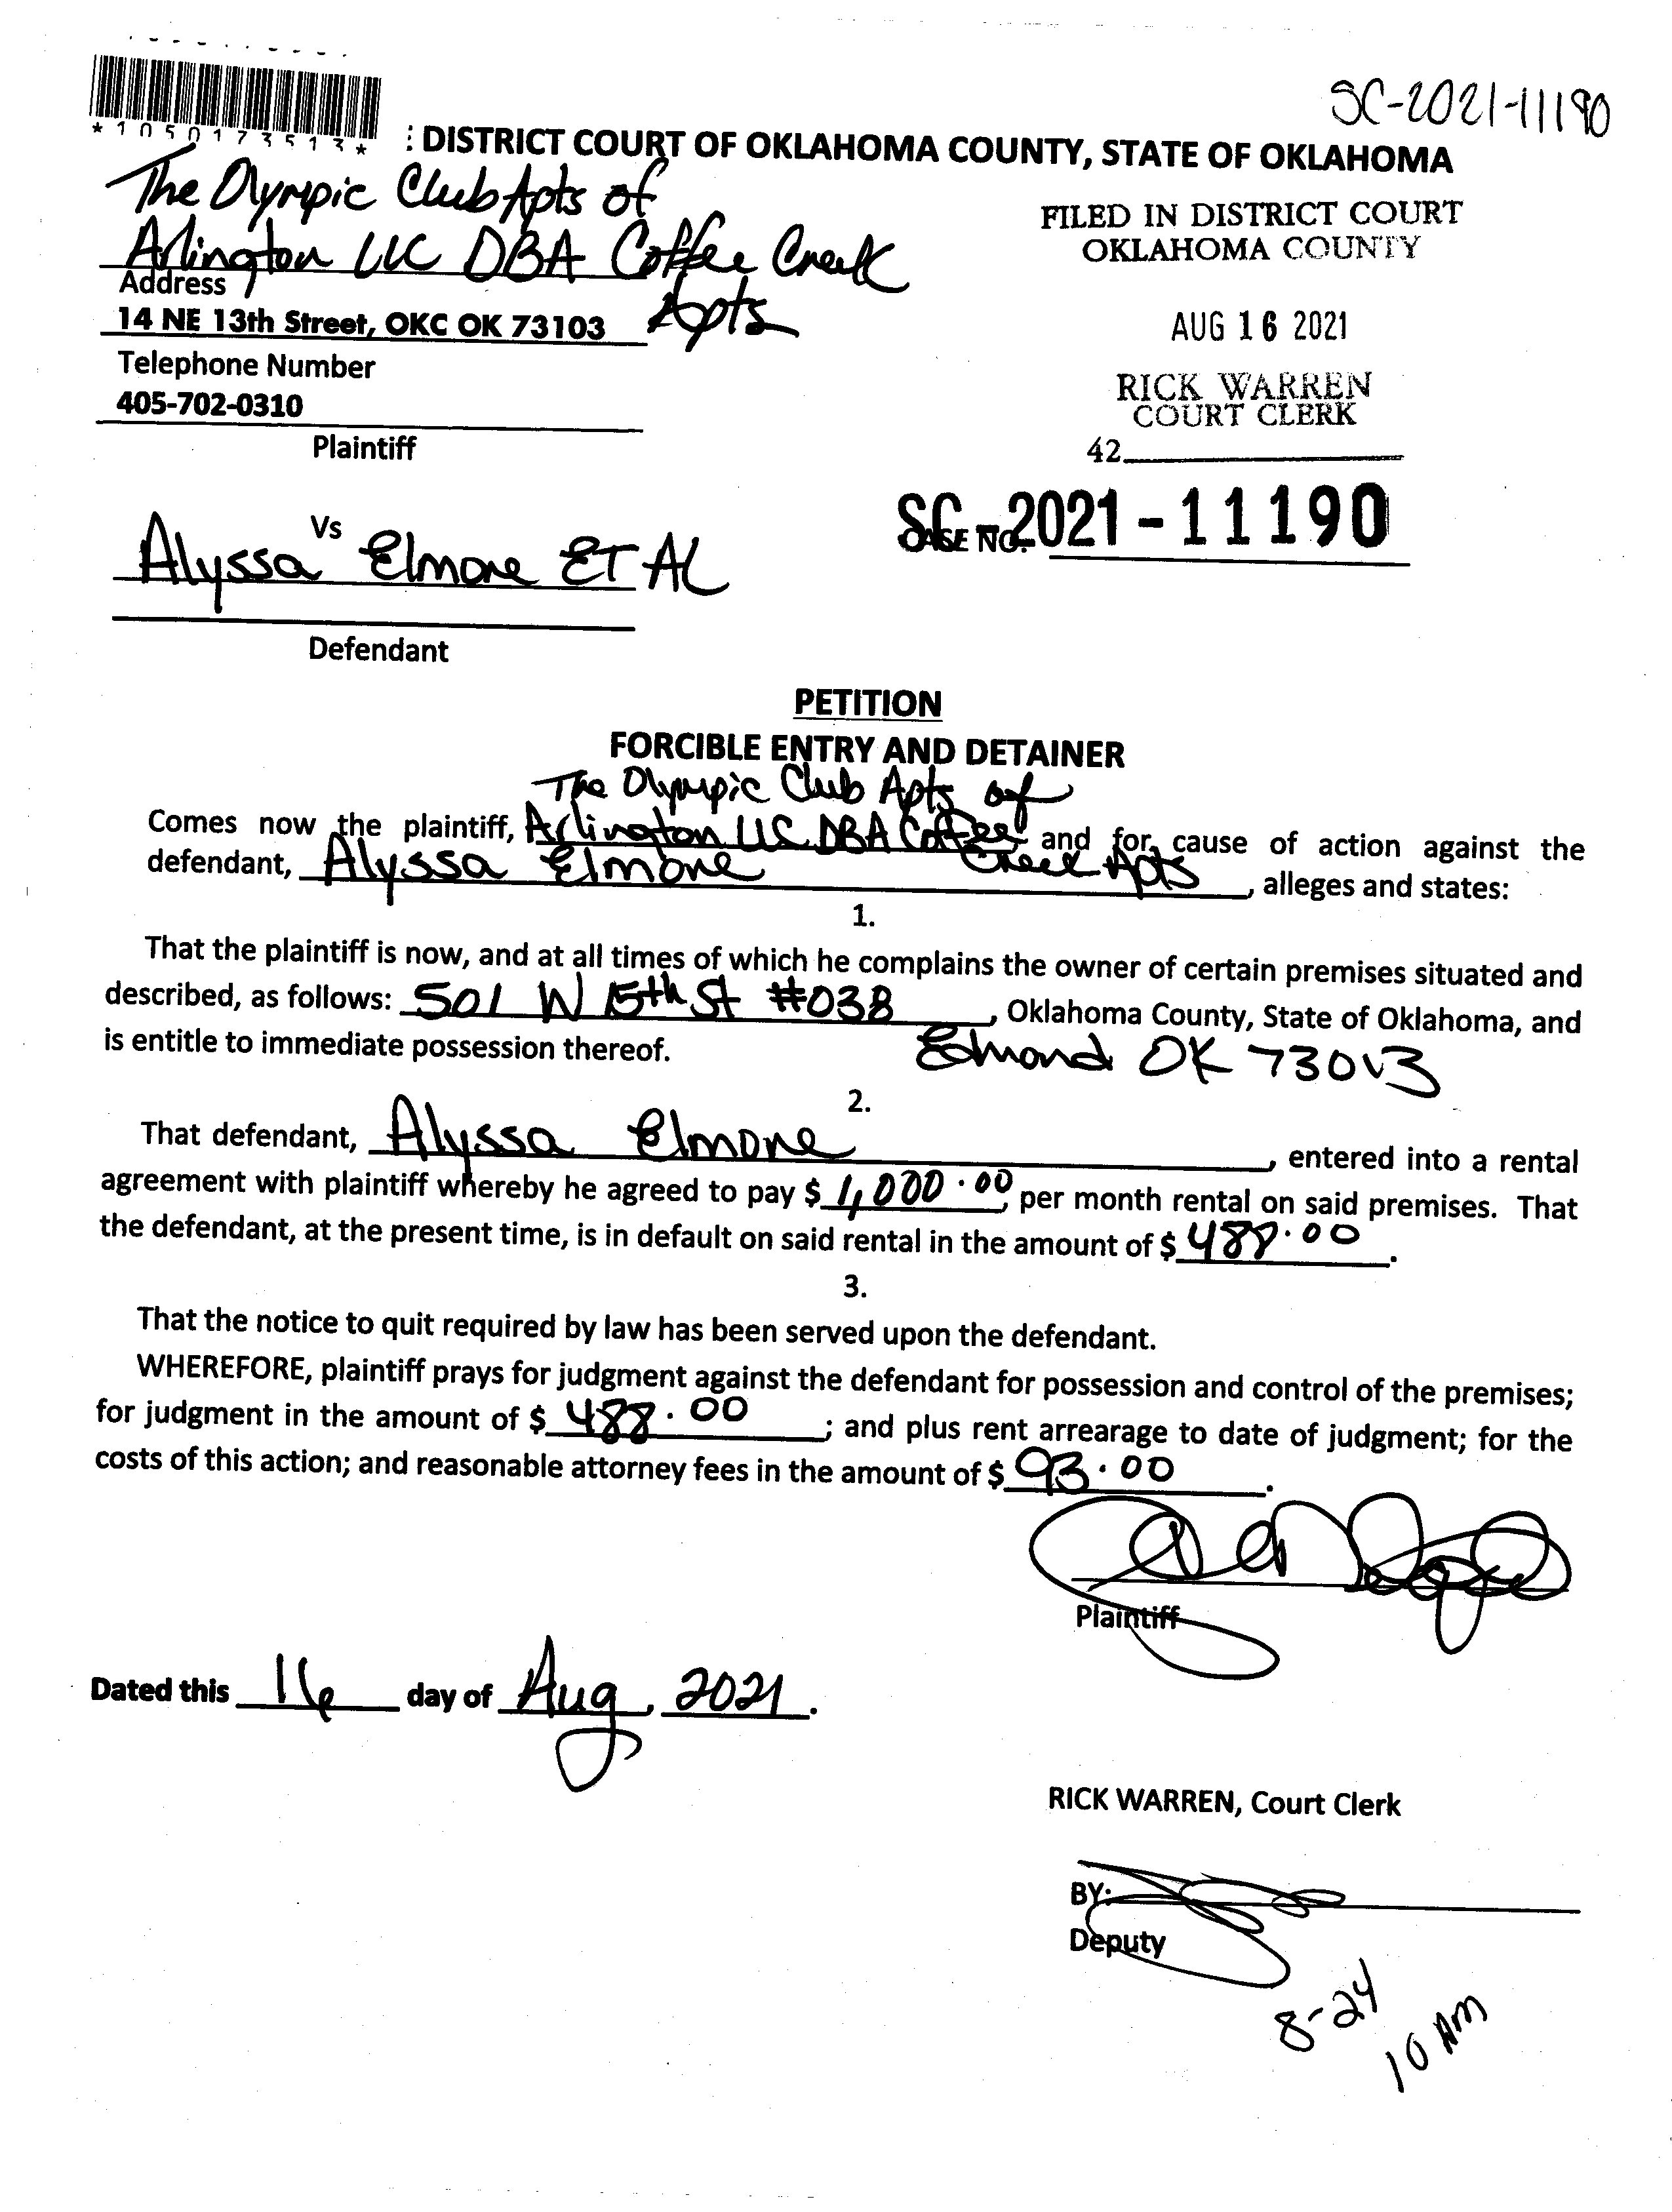 SC-2021-11190
*1050173513*
: DISTRICT COURT OF OKLAHOMA COUNTY, STATE OF OKLAHOMA
The Olympic Club Apts of
Arlington LLC DBA Coffee Creek
Apts
Address
14 NE 13th Street, OKC OK 73103
Telephone Number
405-702-0310
Plaintiff
FILED IN DISTRICT COURT
OKLAHOMA COUNTY
AUG 16 2021
RICK WARREN
COURT CLERK
42
Vs
SC-2021-11190
CASE NO.
Alyssa Elmore ET AL
Defendant
PETITION
FORCIBLE ENTRY AND DETAINER
The Olympic Club Apts of
Comes now the plaintiff, Arlington LLC DBA Coffee and for cause of action against the
Creek Apts
defendant, Alyssa Elmore, alleges and states:
1.
That the plaintiff is now, and at all times of which he complains the owner of certain premises situated and
described, as follows: 501 W 15th St #038, Oklahoma County, State of Oklahoma, and
is entitle to immediate possession thereof. Edmond OK 73013
2.
That defendant, Alyssa Elmore, entered into a rental
agreement with plaintiff whereby he agreed to pay $ 1,000.00, per month rental on said premises. That
the defendant, at the present time, is in default on said rental in the amount of $ 488.00.
3.
That the notice to quit required by law has been served upon the defendant.
WHEREFORE, plaintiff prays for judgment against the defendant for possession and control of the premises;
for judgment in the amount of $ 488.00; and plus rent arrearage to date of judgment; for the
costs of this action; and reasonable attorney fees in the amount of $ 93.00.
Plaintiff
Dated this 16 day of Aug, 2021.
RICK WARREN, Court Clerk
BY:
Deputy
8-24
10 AM